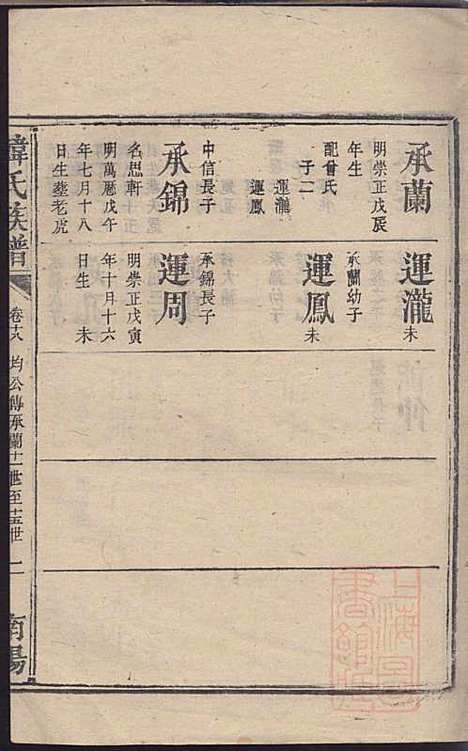 承蘭
明崇正戊辰
年生
配曾氏
子二
運瀧
運鳳
承錦
中信長子
名思軒
明萬曆戊午
年七月十八
日生塟老虎
運瀧未
運鳳未
承蘭幼子
運周
承錦長子
明崇正戊寅
年十月十六
日生 未
韓氏族譜
均公傳承蘭十一世至十五世
二
南陽
上海圖書館藏